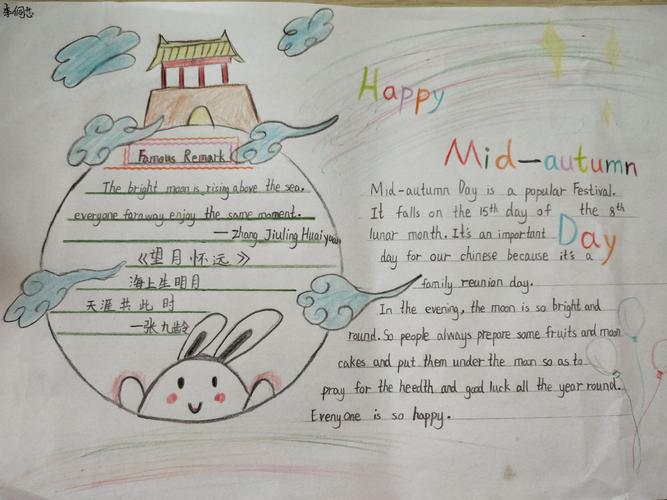 李何忠
Happy
Mid-autumn
Day
Famous Remark
The bright moon is rising above the sea.
everyone faraway enjoy the same moment.
— Zhang Jiuling Huaiyuan
《望月怀远》
海上生明月
天涯共此时
—张九龄
Mid-autumn Day is a popular Festival.
It falls on the 15th day of the 8th
lunar month. It's an important
day for our chinese because it's a
family reunion day.
In the evening, the moon is so bright and
round. So people always prepare some fruits and moon
cakes and put them under the moon so as to
pray for the heedth and good luck all the year round.
Everyone is so happy.